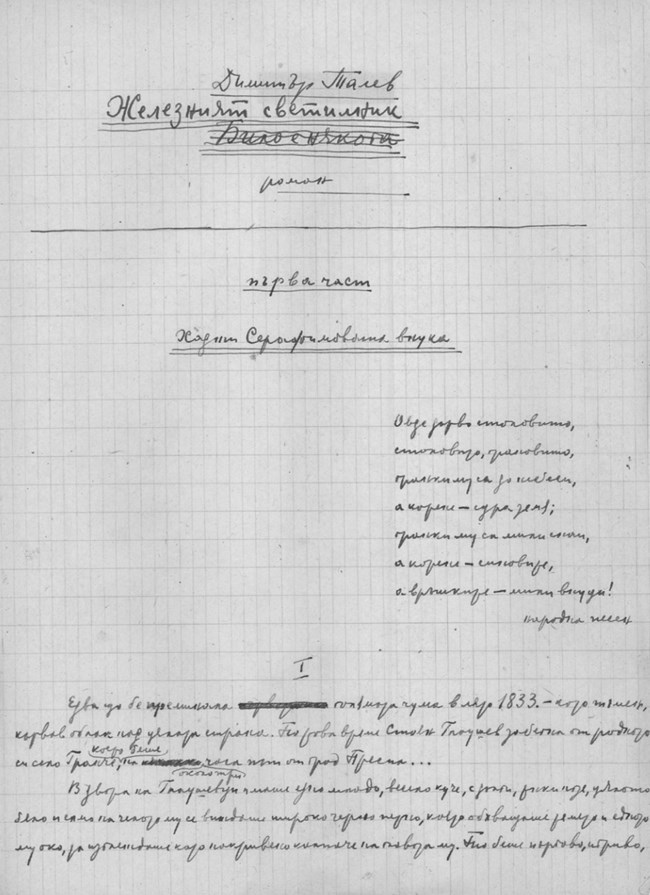 Димитър Талев
Железният светилник
Било е някога
роман
първа част
Хаджи Серафимовата внука
Овде дърво столовито,
столовито, грановито,
гранки му са до небеси,
а корени – сура земя;
гранки му са мили снаи,
а корени – синовите,
а връшките – мили внуци!
народна песен
I
Едва що бе преминала голямата чума в лято 1833. – като тъмен,
кървав облак над цялата страна. По това време Стоян Глаушев забягна от родното
си село Гранче, което беше на около три часа път от град Преспа...
В двора на Глаушевци имаше едно младо, весело куче, с дълги, тънки нозе, цялото
бяло и само на челото му се виждаше широко черно петно, което обхващаше и едното
му око, та изглеждаше като накривено капаче на главата му. То беше игриво,